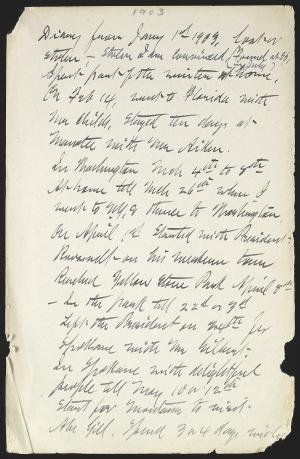 1903
Diary from Jany 1st 1903, lost or
stolen - Stolen I am convinced, (Found at Sy,
Spent part of the winter at home,
On Feb 14, went to Florida with
Mr Childs, stayed ten days at
Manatee with Mr Aiken.
In Washington Mch 4th to 8th
At home till Mch 26th when I
went to N.Y, & thence to Washington.
On April 1st started with President
Roosevelt on his western tour
Reached Yellow Stone Park April 8th
- In the park till 22d or 3d
Left the President on 24th for
Spokane with Mr Gilbert.
In Spokane with delightful
people till May 10 or 12th
Start for Montana to visit
Abe Gill, Spend 3 or 4 days with